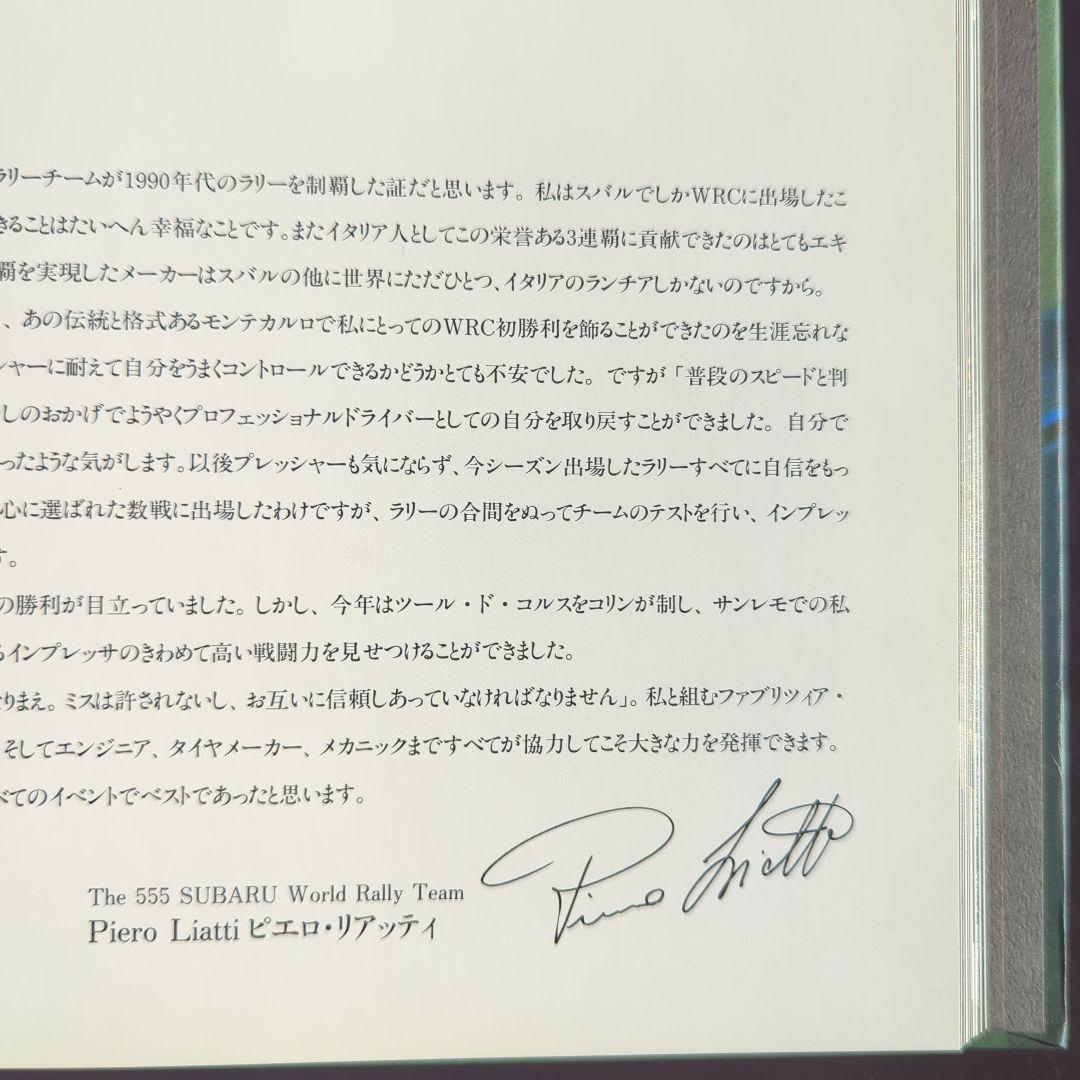 ラリーチームが1990年代のラリーを制覇した証だと思います。私はスバルでしかWRCに出場したこ
きることはたいへん幸福なことです。またイタリア人としてこの栄誉ある3連覇に貢献できたのはとてもエキ
覇を実現したメーカーはスバルの他に世界にただひとつ、イタリアのランチアしかないのですから。
、あの伝統と格式あるモンテカルロで私にとってのWRC初勝利を飾ることができたのを生涯忘れな
シャーに耐えて自分をうまくコントロールできるかどうかとても不安でした。ですが「普段のスピードと判
しのおかげでようやくプロフェッショナルドライバーとしての自分を取り戻すことができました。自分で
ったような気がします。以後プレッシャーも気にならず、今シーズン出場したラリーすべてに自信をもっ
心に選ばれた数戦に出場したわけですが、ラリーの合間をぬってチームのテストを行い、インプレッ
す。
の勝利が目立っていました。しかし、今年はツール・ド・コルスをコリンが制し、サンレモでの私
るインプレッサのきわめて高い戦闘力を見せつけることができました。
なりまえ。ミスは許されないし、お互いに信頼しあっていなければなりません」。私と組むファブリツィア・
そしてエンジニア、タイヤメーカー、メカニックまですべてが協力してこそ大きな力を発揮できます。
べてのイベントでベストであったと思います。
The 555 SUBARU World Rally Team
Piero Liatti ピエロ・リアッティ
Piero Liatti